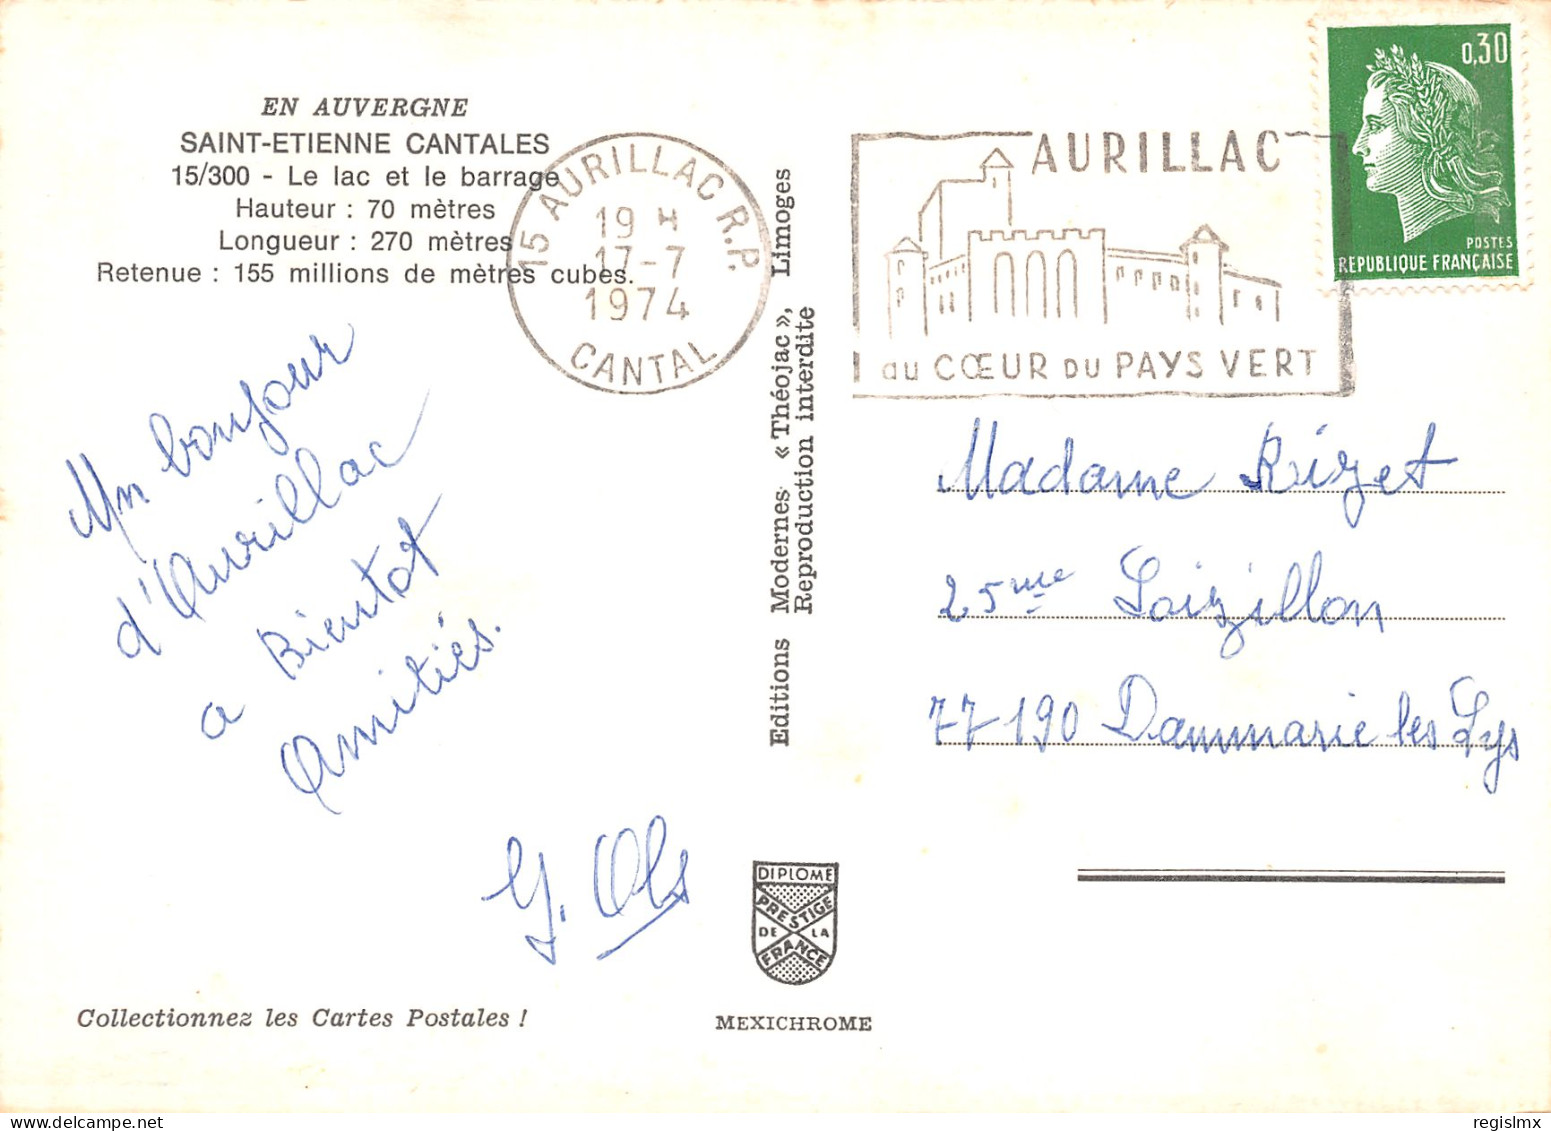 EN AUVERGNE
SAINT-ETIENNE CANTALES
15/300 - Le lac et le barrage
Hauteur : 70 mètres
Longueur : 270 mètres
Retenue : 155 millions de mètres cubes.
15 AURILLAC R.P.
19 H
17-7
1974
CANTAL
AURILLAC
au CŒUR DU PAYS VERT
0,30
POSTES
REPUBLIQUE FRANÇAISE
Un bonjour
d'Aurillac
a Bientot
Amitiés.
Editions Modernes « Théojac », Limoges
Reproduction interdite
Madame Rizet
25 me Loizillon
77190 Dammarie les Lys
DIPLOME
PRESTIGE
DE LA
FRANCE
Collectionnez les Cartes Postales !
MEXICHROME
regislmx